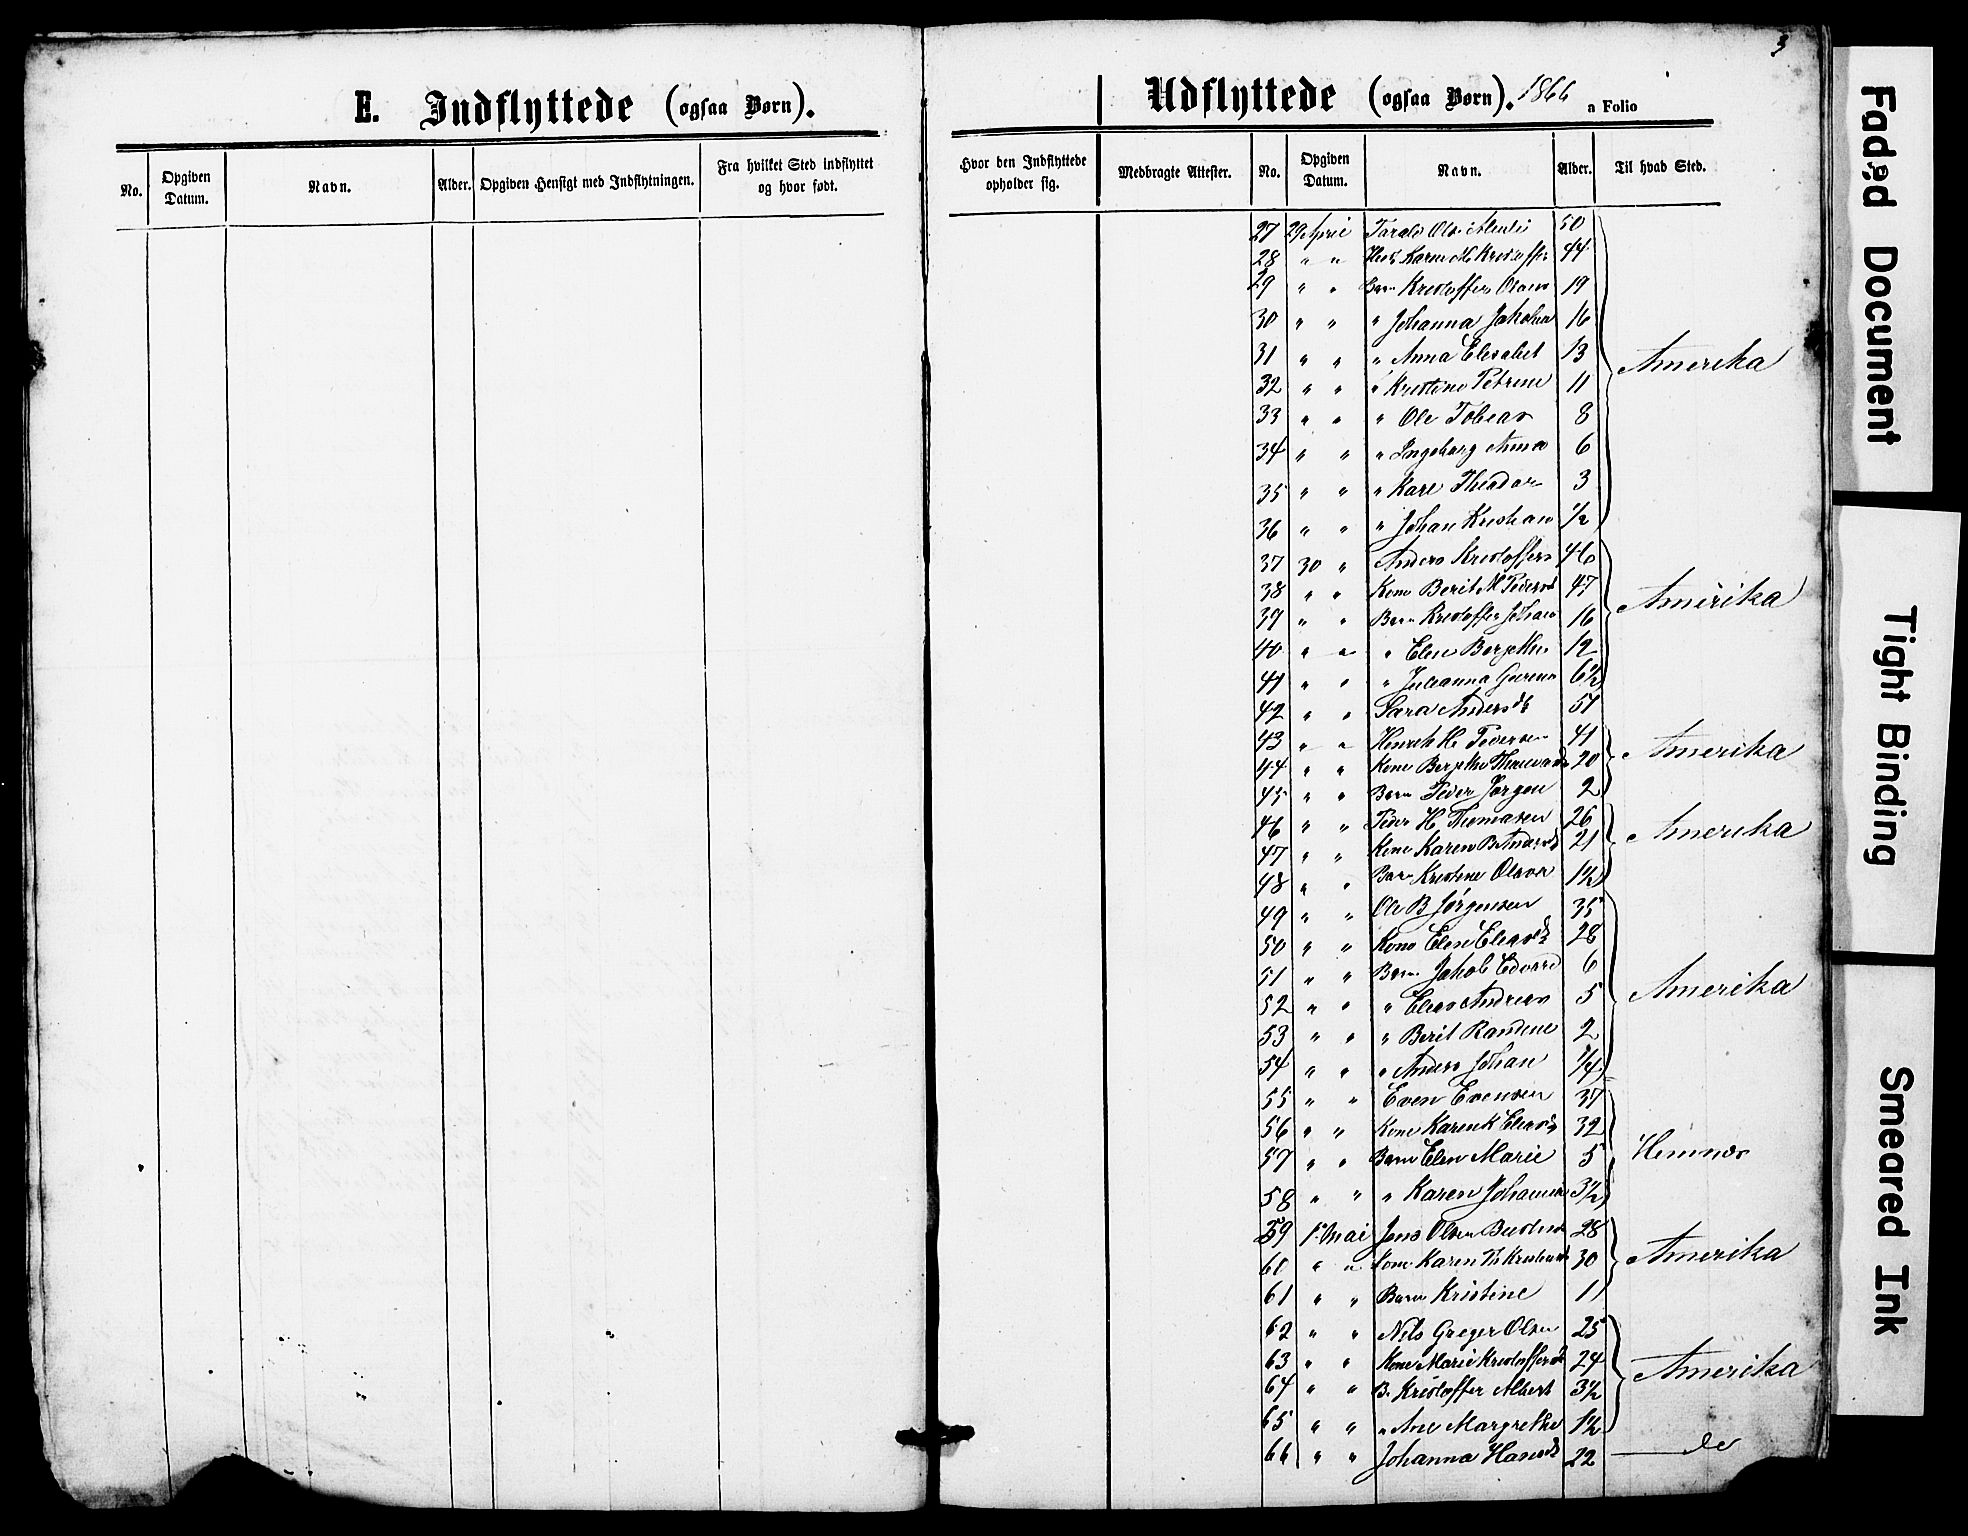 3
E. Indflyttede (ogsaa Børn).
No. Opgiven Datum. Navn. Alder. Opgiven Hensigt med Indflytningen. Fra hvilket Sted indflyttet og hvor født.
Udflyttede (ogsaa Børn). 1866 a Folio
Hvor den Indflyttede opholder sig. Medbragte Attester. No. Opgiven Datum. Navn. Alder. Til hvad Sted.
27 29 April 50
28 " " Karen M. 44
29 " " Barn Kristoffer 19
30 " " " Johanna 16
31 " " " Anna Elisabet 13 Amerika
32 " " " Kristine Petrine 11
33 " " " Ole Tobias 8
34 " " " Ingeborg Anna 6
35 " " " Karl Theodor 3
36 " " " Johan Kristian 1/2
37 30 " Anders Kristoffers 46
38 " " Kone Berit M Pedersd 47 Amerika
39 " " Barn Kristoffer Johan 16
40 " " " Elen Bergithe 12
41 " " " Julianna 6 1/2
42 " " Sara Andersd 51
43 " " Henrik H. Pedersen 41 Amerika
44 " " Kone Bergithe 20
45 " " Barn Peder Jørgen 2
46 " " Peder H. Thomasen 26 Amerika
47 " " Kone Karen B Andersd 21
48 " " Barn Kristine 1 1/2
49 " " Ole B Jørgensen 35
50 " " Kone Elen Eliasd 28
51 " " Barn Jakob Edvard 6
52 " " " Elias Andreas 5 Amerika
53 " " " Berit Randine 2
54 " " " Anders Johan 1/4
55 " " Even Evensen 37
56 " " Kone Karen K Eliasd 32
57 " " Barn Elen Marie 5 Hemnæs
58 " " " Karen 3 1/2
59 1 Mai Jens Olsen 28
60 " " Kone Karen 30 Amerika
61 " " Barn Kristine 1
62 " " Nils Greger Olsen 25
63 " " Kone Marie Kristoffersd 24 Amerika
64 " " B. Kristoffer Albert 3 1/2
65 " " " Ane Margrethe 1 1/2
66 " " Johanna Hansd 22 do
Faded Document
Tight Binding
Smeared Ink